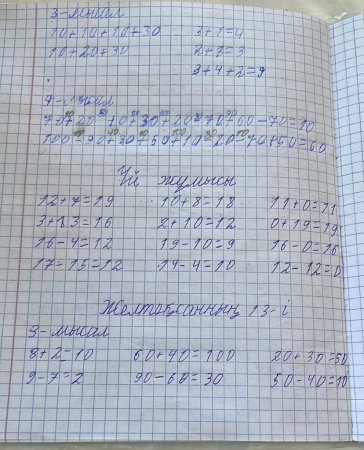 3-мысал
10+10+10=30 3+1=4
10+20=30 2+1=3
3+4+2=9
7-мысал
100-90+30+50+10-20-70+50=60
Үй жұмысы
12+7=19 10+8=18 11+0=11
3+13=16 2+10=12 0+19=19
16-4=12 19-10=9 16-0=16
17-15=12 14-4=10 12-12=0
Желтоқсанның 13-і
9-мысал
8+2=10 60+40=100 20+30=50
9-7=2 90-60=30 50-40=10